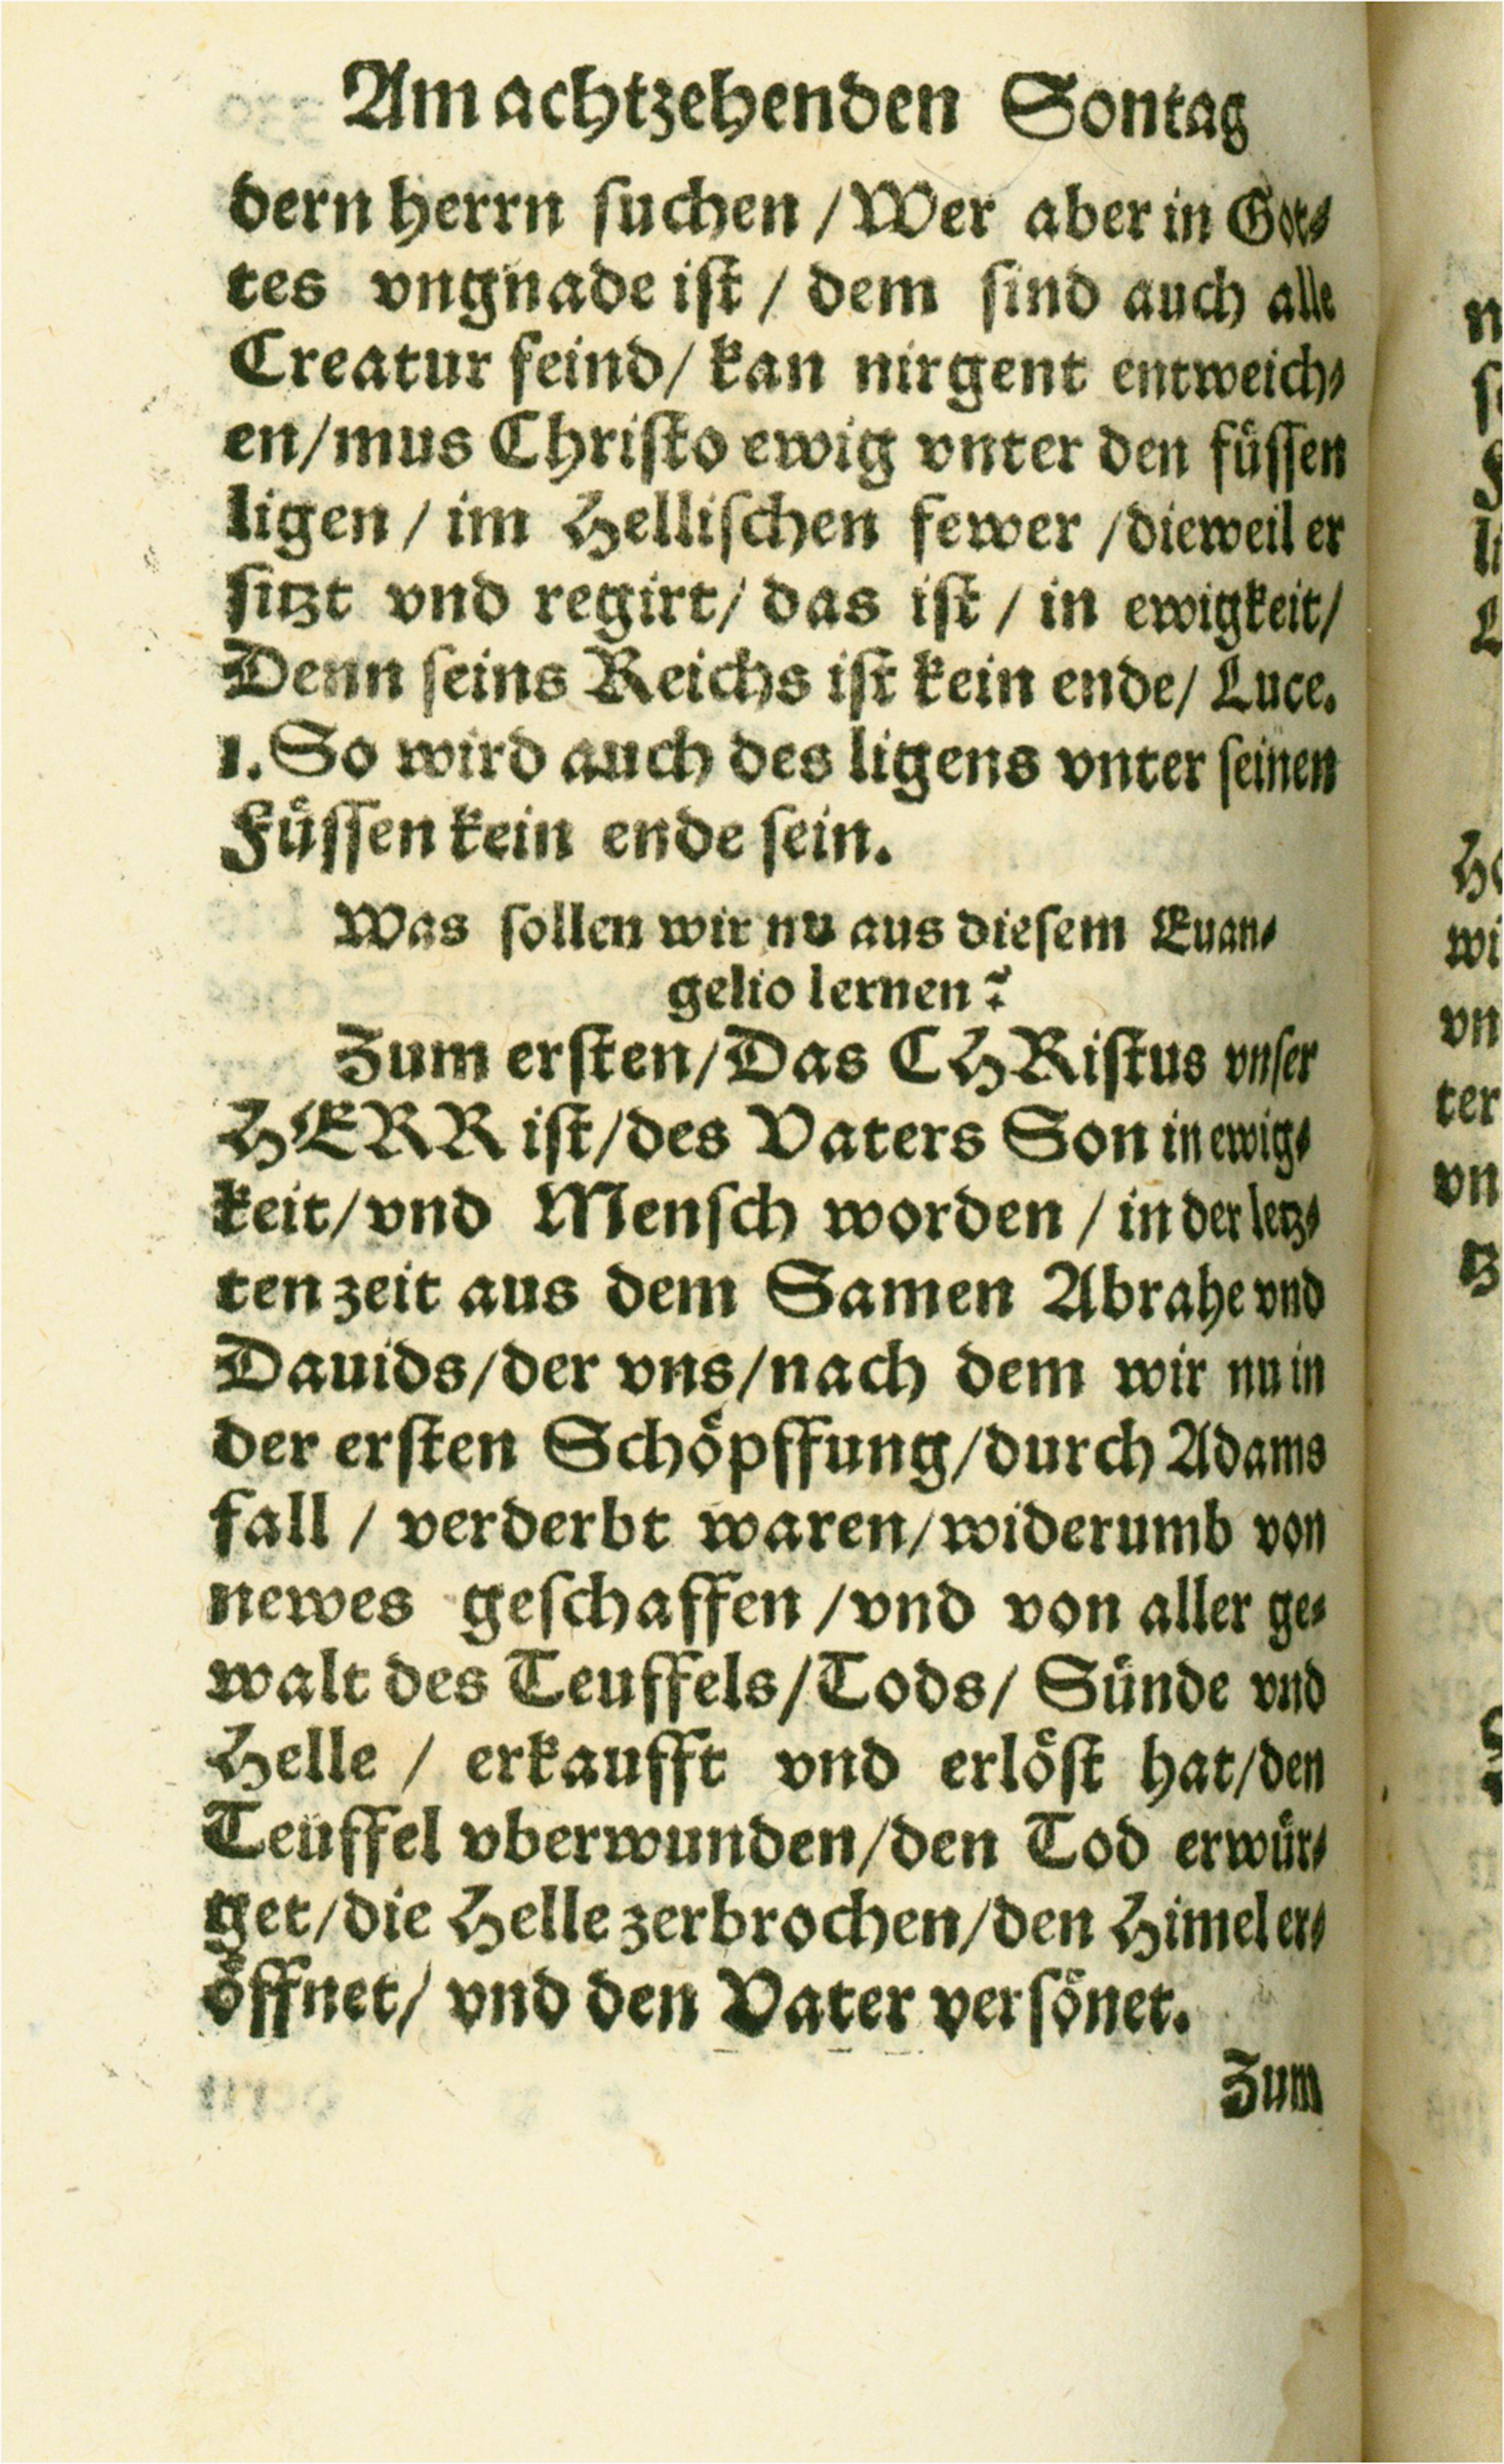 Am achtzehenden Sontag
dern herrn ſuchen / Wer aber in Got⸗
tes vngnade iſt / dem ſind auch alle
Creatur feind / kan nirgent entweich⸗
en / mus Chriſto ewig vnter den füſſen
ligen / im Helliſchen fewer / dieweil er
ſitzt vnd regirt / das iſt / in ewigkeit /
Denn ſeins Reichs iſt kein ende / Luce.
1. So wird auch des ligens vnter ſeinen
Füſſen kein ende ſein.
Was ſollen wir nu aus dieſem Euan⸗
gelio lernen?
Zum erſten / Das CHRiſtus vnſer
HERR iſt / des Vaters Son in ewig⸗
keit / vnd Menſch worden / in der letz⸗
ten zeit aus dem Samen Abrahe vnd
Dauids / der vns / nach dem wir nu in
der erſten Schöpffung / durch Adams
fall / verderbt waren / widerumb von
newes geſchaffen / vnd von aller ge⸗
walt des Teuffels / Tods / Sünde vnd
Helle / erkaufft vnd erlöſt hat / den
Teuffel vberwunden / den Tod erwür⸗
get / die Helle zerbrochen / den Himel er⸗
öffnet / vnd den Vater verſönet.
Zum